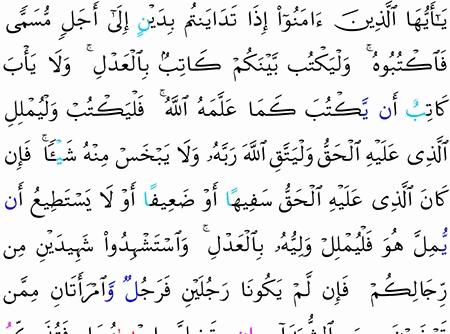 يَٰٓأَيُّهَا ٱلَّذِينَ ءَامَنُوٓاْ إِذَا تَدَايَنتُم بِدَيۡنٍ إِلَىٰٓ أَجَلٖ مُّسَمّٗى
فَٱكۡتُبُوهُۚ وَلۡيَكۡتُب بَّيۡنَكُمۡ كَاتِبُۢ بِٱلۡعَدۡلِۚ وَلَا يَأۡبَ
كَاتِبٌ أَن يَكۡتُبَ كَمَا عَلَّمَهُ ٱللَّهُۚ فَلۡيَكۡتُبۡ وَلۡيُمۡلِلِ
ٱلَّذِي عَلَيۡهِ ٱلۡحَقُّ وَلۡيَتَّقِ ٱللَّهَ رَبَّهُۥ وَلَا يَبۡخَسۡ مِنۡهُ شَيۡـٔٗاۚ فَإِن
كَانَ ٱلَّذِي عَلَيۡهِ ٱلۡحَقُّ سَفِيهًا أَوۡ ضَعِيفًا أَوۡ لَا يَسۡتَطِيعُ أَن
يُمِلَّ هُوَ فَلۡيُمۡلِلۡ وَلِيُّهُۥ بِٱلۡعَدۡلِۚ وَٱسۡتَشۡهِدُواْ شَهِيدَيۡنِ مِن
رِّجَالِكُمۡۖ فَإِن لَّمۡ يَكُونَا رَجُلَيۡنِ فَرَجُلٞ وَٱمۡرَأَتَانِ مِمَّن